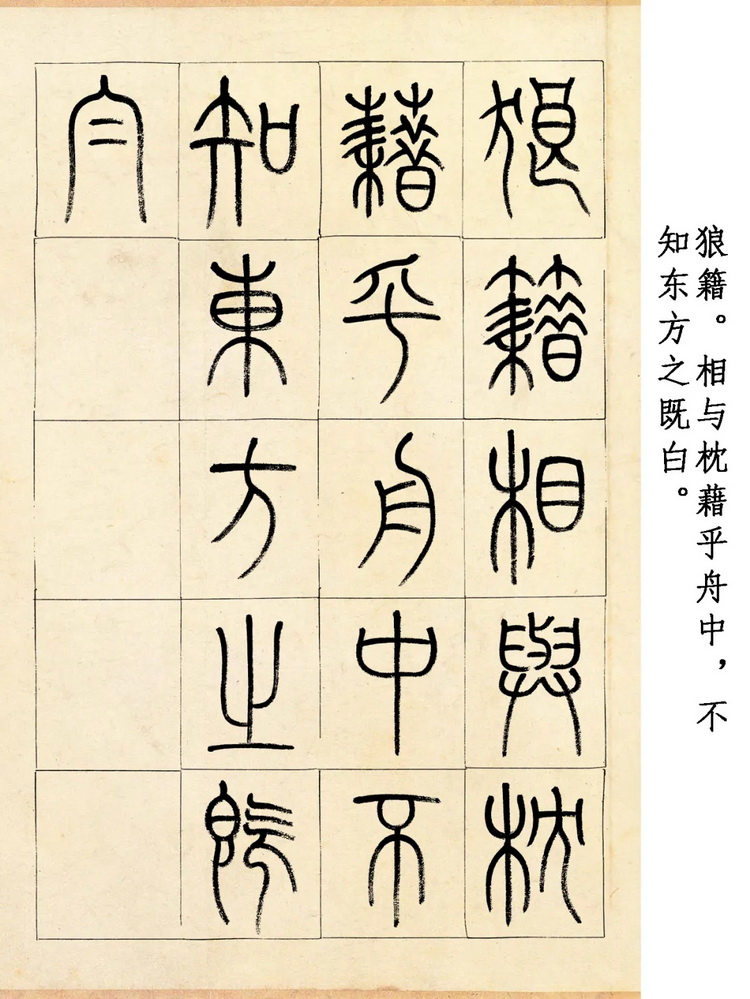 狼籍相與枕
藉乎舟中不
知東方之既
白
狼籍。相与枕藉乎舟中，不
知东方之既白。